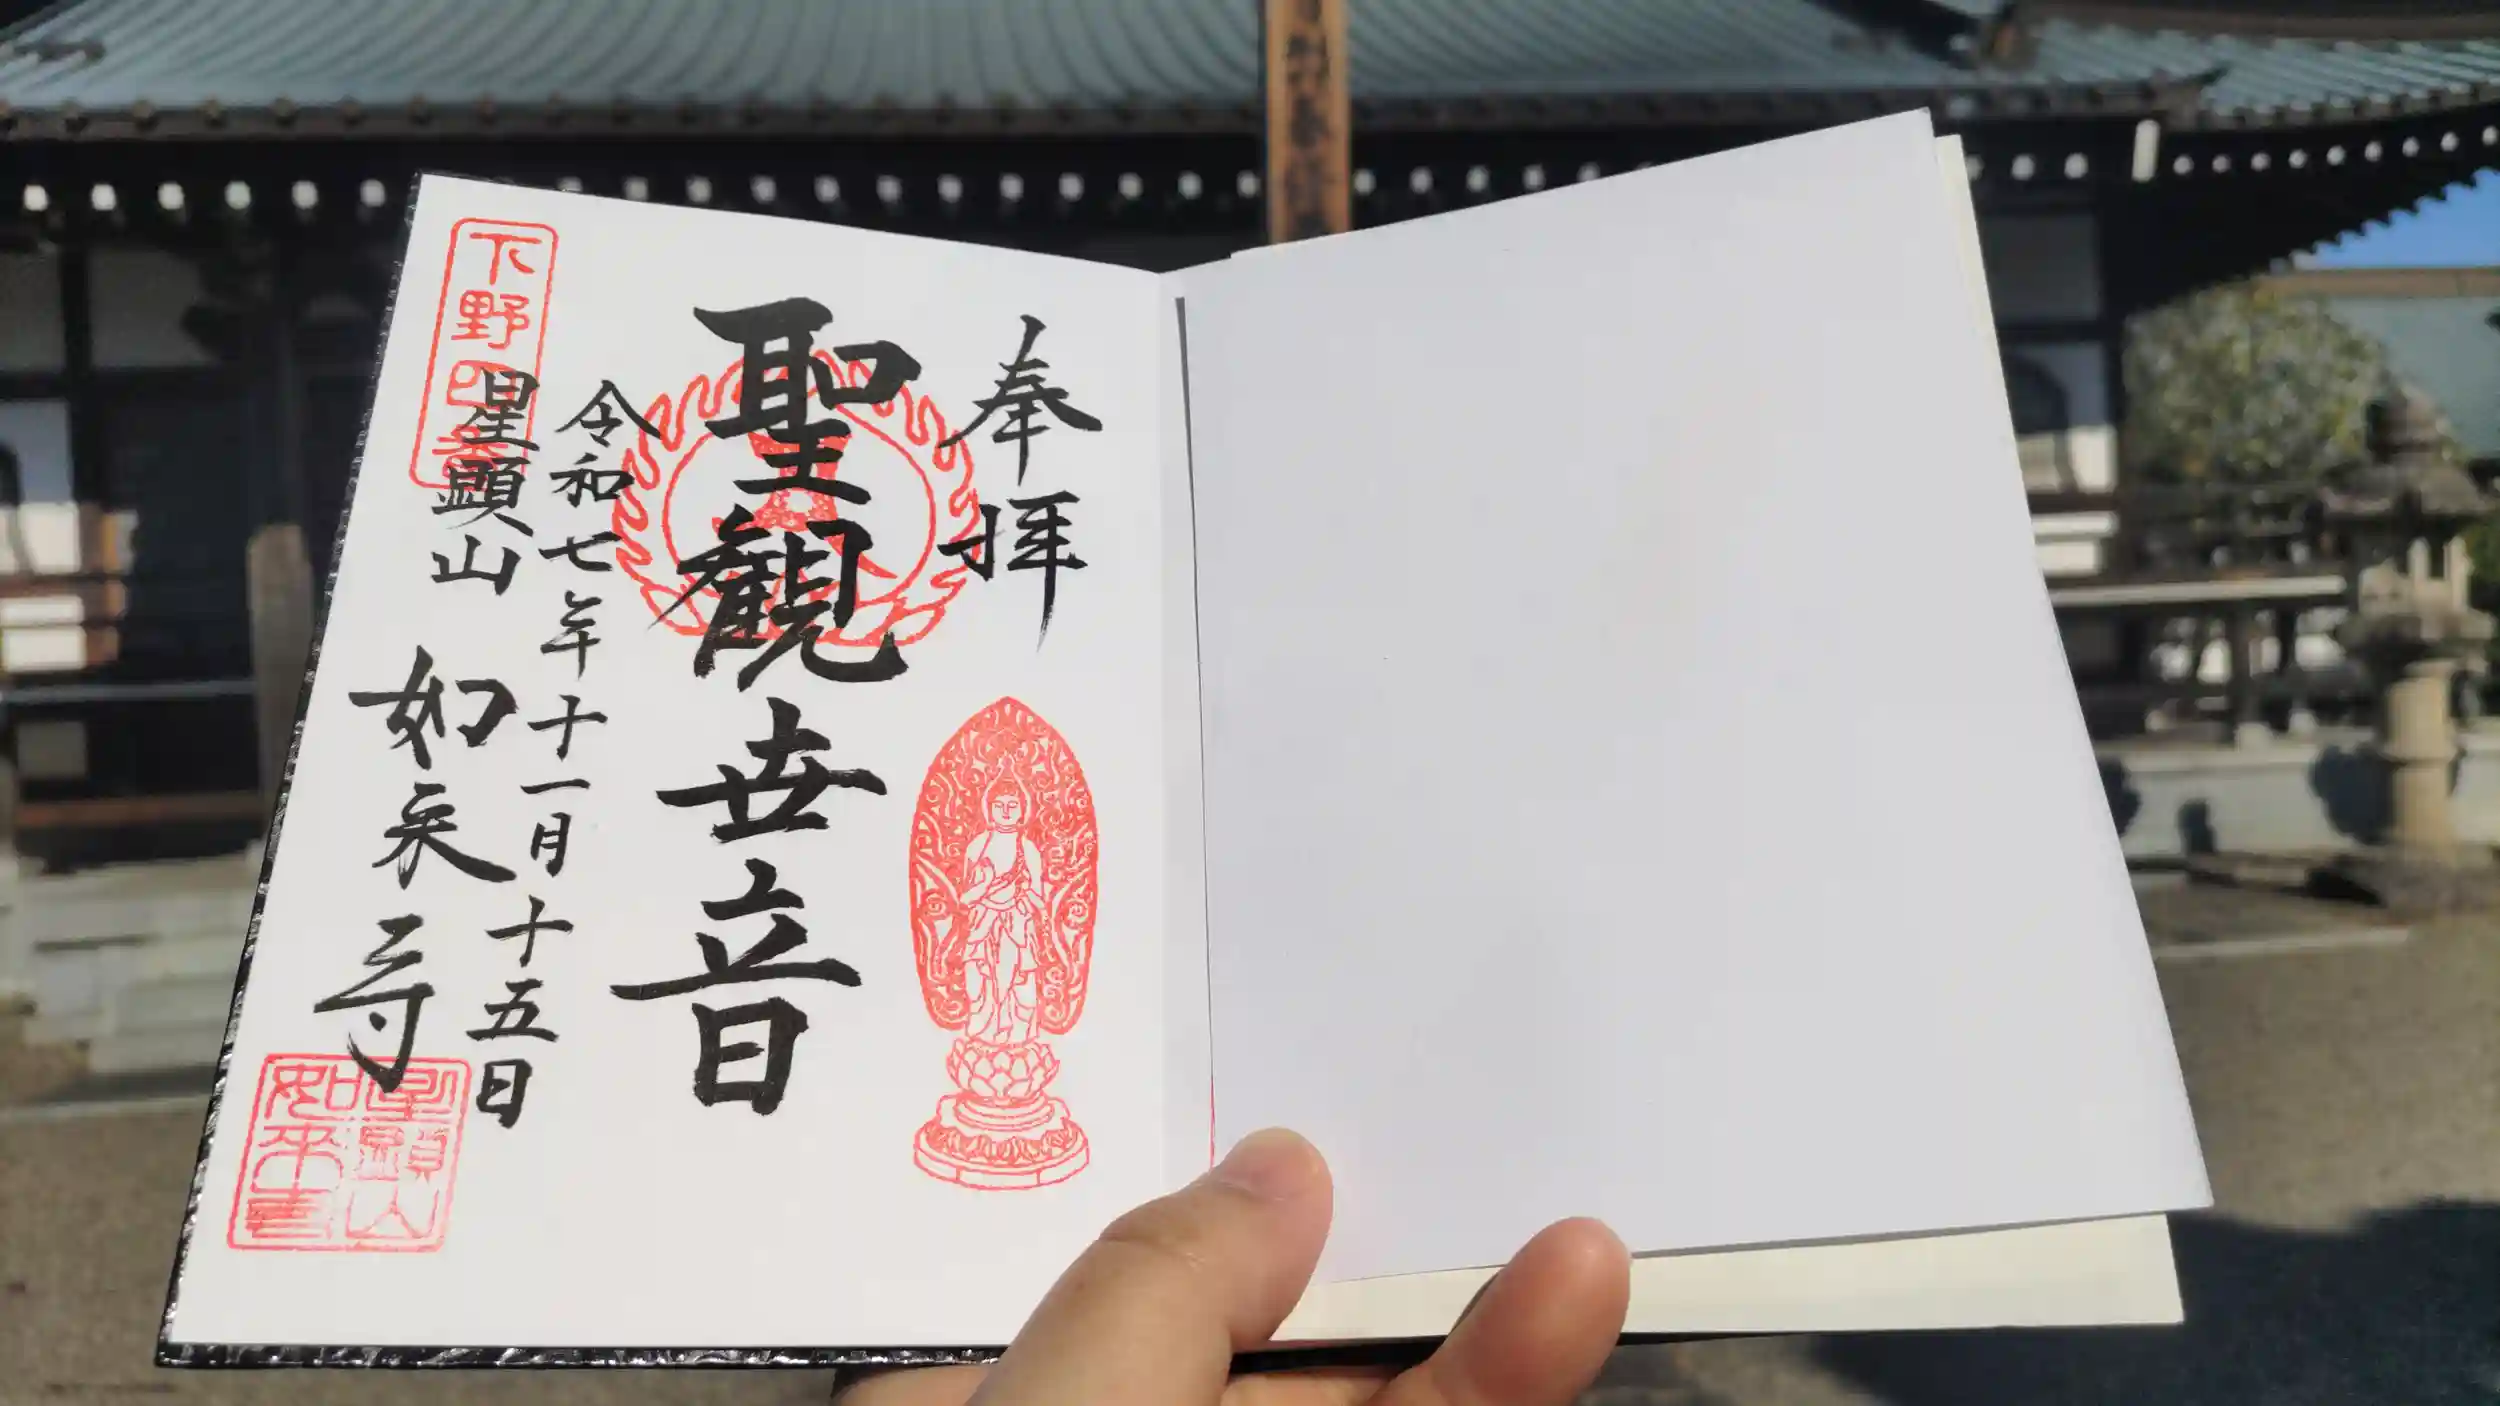 奉拝
聖観世音
令和七年十一月十五日
星顕山
如来寺
下野
星顕山
如来寺